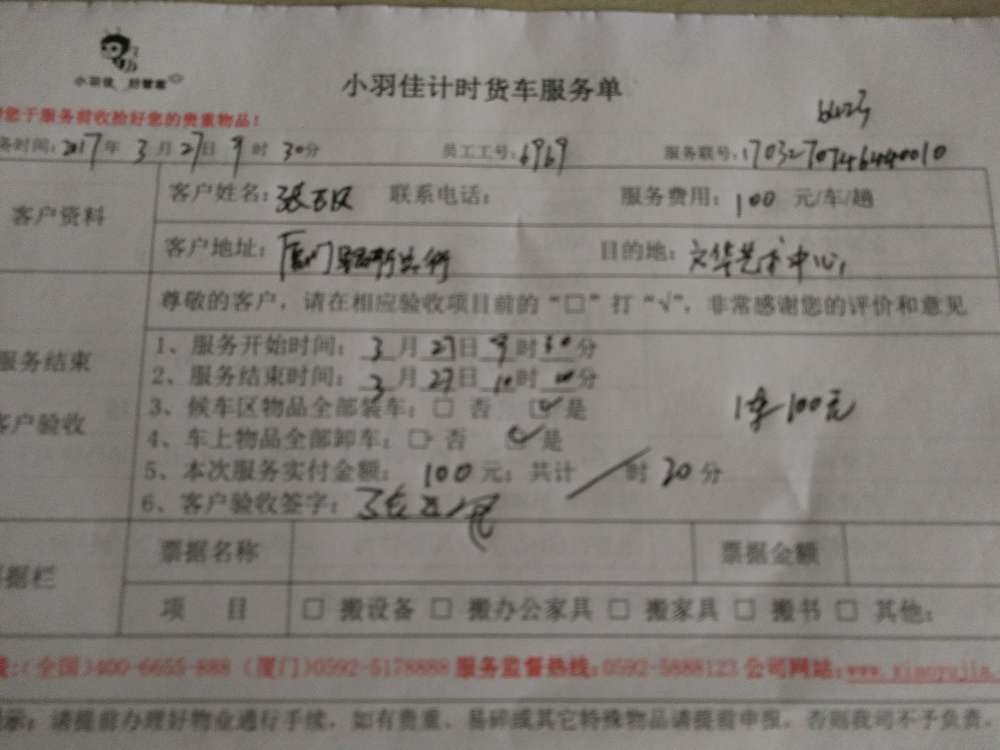 小羽佳 好管家
小羽佳计时货车服务单
您于服务前收拾好您的贵重物品!
务时间:2017年 3 月 27日 9 时 30分 员工工号:6969 服务联号:17032707464440010
客户资料
客户姓名: 联系电话: 服务费用:100 元/车/趟
客户地址:厦门 目的地:文华艺术中心
尊敬的客户,请在相应验收项目前的“□”打“√”,非常感谢您的评价和意见
服务结束
客户验收
1、服务开始时间:3 月 27日 9 时 30 分
2、服务结束时间:3 月 27日 10 时 00 分
3、候车区物品全部装车:□ 否 ☑ 是
1车100元
4、车上物品全部卸车:□ 否 ☑ 是
5、本次服务实付金额:100 元;共计 / 时 30 分
6、客户验收签字:
据栏
票据名称 票据金额
项 目 □ 搬设备 □ 搬办公家具 □ 搬家具 □ 搬书 □ 其他:
(全国)400-6655-888 (厦门)0592-5178888 服务监督热线:0592-5888123 公司网站:www.xiaoyujia.
示:请提前办理好物业通行手续,如有贵重、易碎或其它特殊物品请提前申报,否则我司不予负责。